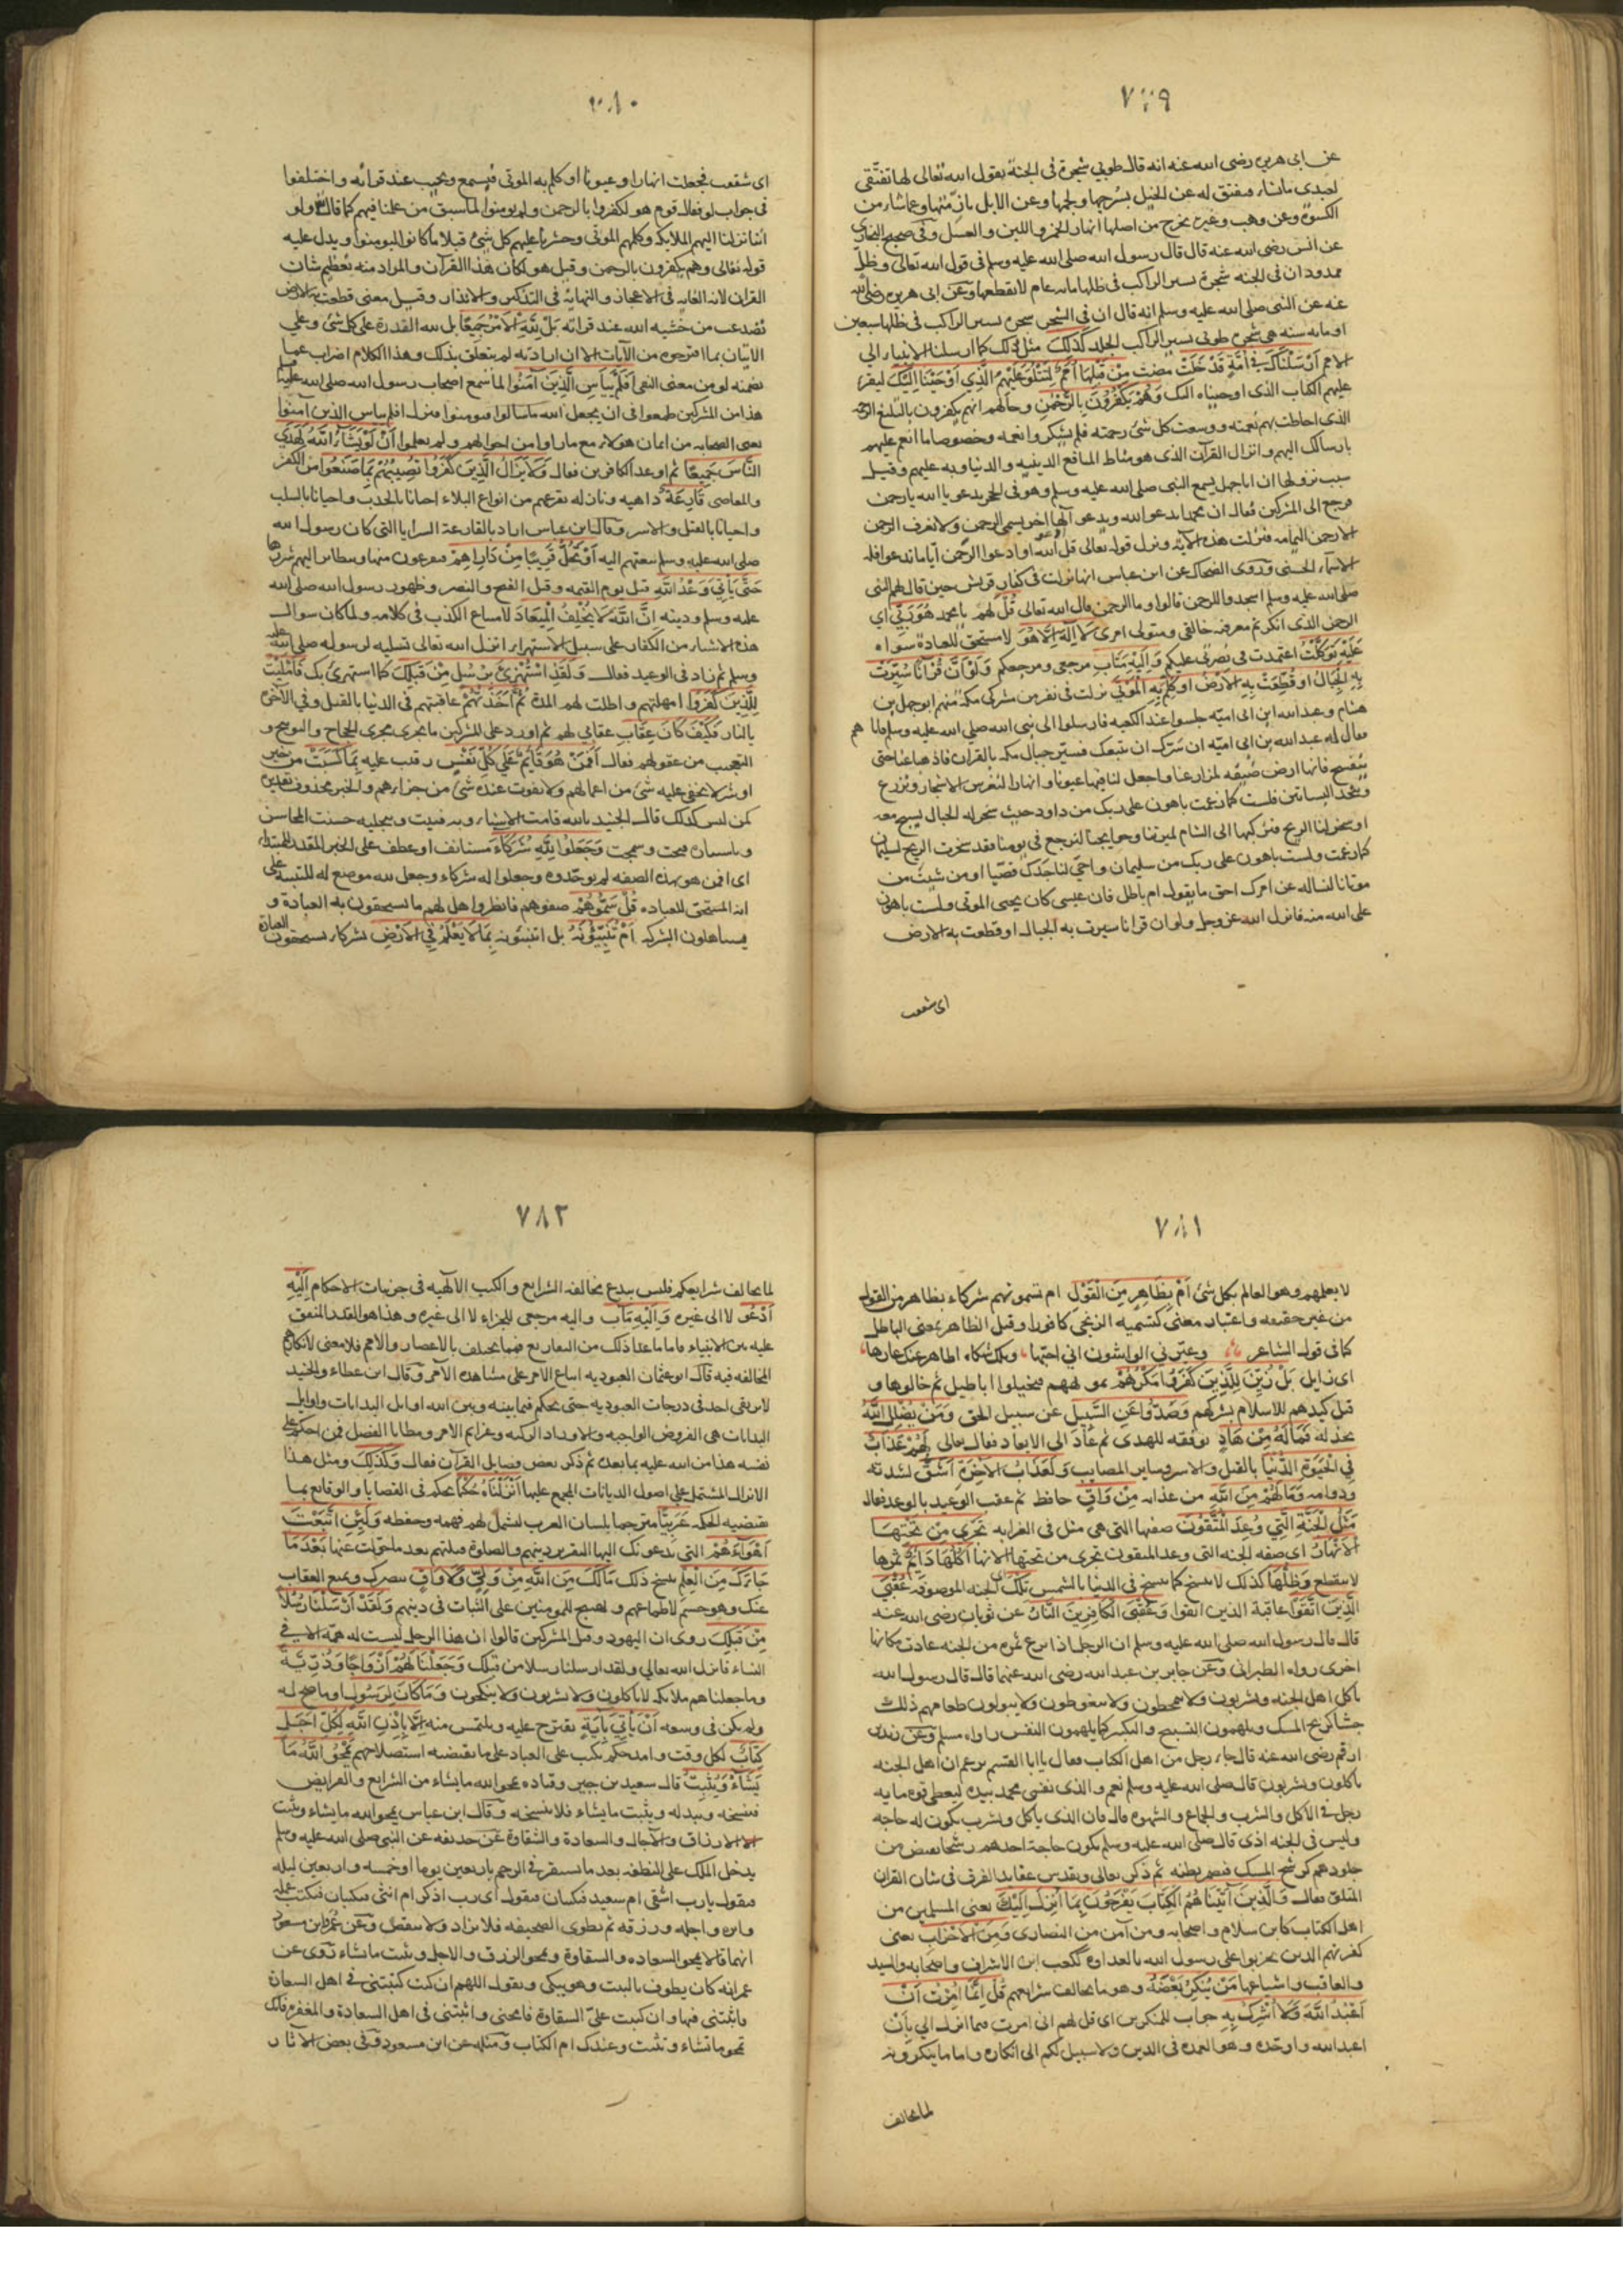 ٧٧٩
عن ابى هريرة رضى الله عنه انه قال طوبي شجرة فى الجنة يقول الله تعالى لها تفتقى
لعبدى ماشاء فيفتق له عن الخيل بسرجها ولجمها وعن الابل بازمتها وعما شاء من
الكسوة وعن وهب وغيره يخرج من اصلها انهار الخمر واللبن والعسل وفى صحيح البخارى
عن انس رضى الله عنه قال قال رسول الله صلى الله عليه وسلم فى قول الله تعالى وظل
ممدود ان فى الجنة شجرة يسير الراكب فى ظلها مايه عام لا يقطعها وعن ابى هريرة رضى الله
عنه عن النبى صلى الله عليه وسلم انه قال ان فى الشجر شجرة يسير الراكب فى ظلها سبعين
او مايه سنه هى شجرة طوبى يسير الراكب الجلد كذلك مثل ذلك كما ارسلنا الانبياء الى
الامم ارسلناك فى امة قد خلت مضت من قبلها امم لتتلو عليهم الذي اوحينا اليك ليقرا
عليهم الكتاب الذى اوحيناه اليك وهم يكفرون بالرحمن وحالهم انهم يكفرون بالبليغ الرحمة
الذى احاطت بهم نعمته ووسعت كل شئ رحمته فلم يشكروا نعمه وخصوصا ما انعم عليهم
بارسالك اليهم وانزال القرآن الذى هو مناط المنافع الدينيه والدنياويه عليهم وقيل
سبب نزولها ان اباجهل سمع النبى صلى الله عليه وسلم وهو فى الحجر يدعو يا الله يا رحمن
فرجع الى المشركين فقال ان محمدا يدعو الله ويدعو آلها اخر يسمى الرحمن ولا نعرف الرحمن
الا رحمن اليمامه فنزلت هذه الآية ونزل قوله تعالى قل ادعوا الله او ادعوا الرحمن اياما تدعوا فله
الاسماء الحسنى وروى الضحاك عن ابن عباس انها نزلت فى كفار قريش حين قال لهم النبى
صلى الله عليه وسلم اسجدوا للرحمن قالوا وما الرحمن قال الله تعالى قل لهم يا محمد هو ربى اى
الرحمن الذى انكرتم معرفته خالقى ومتولى امرى لا اله الا هو لا مستحق للعبادة سواه
عليه توكلت اعتمدت فى نصرتى عليكم واليه متاب مرجعى ومرجعكم ولو ان قرآنا سيرت
به الجبال او قطعت به الارض او كلم به الموتى نزلت فى نفر من مشركى مكة منهم ابوجهل بن
هشام وعبد الله ابن ابى اميه جلسوا عند الكعبه فارسلوا الى نبى الله صلى الله عليه وسلم فاتاهم
فقال له عبد الله بن ابى اميه ان سرك ان نتبعك فسير جبال مكه بالقران فاذهبها عنا حتى
تنفسح فانها ارض ضيقه لمزارعنا واجعل لنا فيها عيونا وانهارا لنغرس الاشجار ونزرع
ونتخذ البساتين فلست كما زعمت باهون على ربك من داود حيث سخر له الجبال يسبح معه
او سخر لنا الريح فنركبها الى الشام لميرتنا وحوايجنا لنرجع فى يومنا فقد سخرت الريح لسليمان
كما زعمت ولست باهون على ربك من سليمان واحي لنا جدك قصيا او من شيت من
موتانا لنساله عن امرك احق ما يقول ام باطل فان عيسى كان يحيى الموتى ولست باهون
على الله منه فانزل الله عز وجل ولو ان قرانا سيرت به الجبال او قطعت به الارض
اى شققت
٧٨٠
اى شققت فجعلت انهارا وعيونا او كلم به الموتى فيسمع ويجيب عند قراته واختلفوا
فى جواب لو فقال قوم هو لكفروا بالرحمن ولم يومنوا لما سبق من علمنا فيهم كما قال ولو
اننا نزلنا اليهم الملايكة وكلمهم الموتى وحشرنا عليهم كل شئ قبلا ما كانوا ليومنوا ويدل عليه
قوله تعالى وهم يكفرون بالرحمن وقيل هو لكان هذا القرآن والمراد منه تعظيم شان
القران لانه الغايه فى الاعجاز والنهايه فى التذكير والانذار وقيل معنى قطعت به الارض
تصدعت من خشيه الله عند قراته بل لله الامر جميعا بل لله القدرة على كل شئ وعلي
الاتيان بما اقترحوه من الآيات الا ان ارادته لم يتعلق بذلك وهذا الكلام اضراب عما
تضمنه لو من معنى النفى افلم ييأس الذين آمنوا لما سمع اصحاب رسول الله صلى الله عليه
هذا من المشركين طمعوا فى ان يجعل الله ما سالوا فيومنوا فنزل افلم يياس الذين آمنوا
يعنى الصحابه من ايمان هولاء مع ما راوا من احوالهم ولم يعلموا ان لو يشاء الله لهدى
الناس جميعا ثم اوعد الكافرين فقال ولا يزال الذين كفروا تصيبهم بما صنعوا من الكفر
والمعاصى قارعة داهيه ونازله تقرعهم من انواع البلاء احيانا بالجدب واحيانا بالسلب
واحيانا بالقتل والاسر وقال ابن عباس اراد بالقارعة السرايا التى كان رسول الله
صلى الله عليه وسلم يبعثهم اليه او تحل قريبا من دارهم فيفزعون منها ويتطاير اليهم شررها
حتى ياتي وعد الله قيل يوم القيمه وقيل الفتح والنصر وظهور رسول الله صلى الله
عليه وسلم ودينه ان الله لا يخلف الميعاد لامتناع الكذب فى كلامه ولما كان سوال
هذه الاشياء من الكفار على سبيل الاستهزاء انزل الله تعالى تسليه لرسوله صلى الله عليه
وسلم ثم زاد فى الوعيد فقال ولقد استهزئ برسل من قبلك كما استهزئ بك فامليت
للذين كفروا امهلتهم واطلت لهم المدة ثم اخذتهم عاقبتهم فى الدنيا بالقتل وفى الآخرة
بالنار فكيف كان عقاب عقابي لهم ثم اورد على المشركين ما يجرى مجرى الحجاج والتوبيخ و
التعجب من عقولهم فقال افمن هو قايم على كل نفس رقيب عليه بما كسبت من خير
او شر لا يخفى عليه شئ من اعمالهم ولا يفوت عنده شئ من جزاءهم والخبر محذوف تقديره
كمن ليس كذلك قال الجنيد بالله قامت الاشياء وبه فنيت وبتجليه حسنت المحاسن
وباستتاره قبحت وسمجت وجعلوا لله شركاء مستانف او عطف على الخبر المقدر
اى افمن هو بهذه الصفه لم يوحدوه وجعلوا له شركاء وجعل لله موضع له للتنبيه على
انه المستحق للعباده قل سموهم صفوهم فانظروا هل لهم ما يستحقون به العبادة و
يستاهلون الشركه ام تنبئونه بل اتنبئونه بما لا يعلم فى الارض بشركاء يستحقون العبادة
٧٨١
لا يعلمهم وهو العالم بكل شئ ام بظاهر من القول ام تسمونهم شركاء بظاهر من القول
من غير حقيقه واعتبار معنى كتسميه الزنجى كافورا وقيل الظاهر بمعنى الباطل
كما فى قول الشاعر وعيرني الواشون اني احبها وتلك شكاة ظاهر عنك عارها
اى زايل بل زين للذين كفروا مكرهم تمويههم فتخيلوا اباطيل ثم خالوها و
قيل كيدهم للاسلام بشركهم وصدوا عن السبيل عن سبيل الحق ومن يضلل الله
يخذله فماله من هاد يوفقه للهدى ثم عاد الى الايعاد فقال تعالى لهم عذاب
فى الحيوة الدنيا بالقتل والاسر وساير المصايب ولعذاب الآخرة اشق لشدته
ودوامه وما لهم من الله من عذابه من واق حافظ ثم عقب الوعيد بالوعد فقال
مثل الجنة التي وعد المتقون صفتها التى هى مثل فى الغرابه تجري من تحتها
الانهار اى صفه الجنه التى وعد المتقون تجرى من تحتها الانهار اكلها دايم ثمرها
لا ينقطع وظلها كذلك لا ينسخ كما ينسخ فى الدنيا بالشمس تلك الجنه الموصوفة عقبى
الذين اتقوا عاقبة الذين اتقوا وعقبى الكافرين النار عن ثوبان رضى الله عنه
قال قال رسول الله صلى الله عليه وسلم ان الرجل اذا نزع ثمره من الجنه عادت مكانها
اخرى رواه الطبرانى وعن جابر بن عبد الله رضى الله عنهما قال قال رسول الله
ياكل اهل الجنه ويشربون ولا يتمخطون ولا يتغوطون ولا يبولون طعامهم ذلك
جشا كريح المسك ويلهمون التسبيح والتكبير كما يلهمون النفس رواه مسلم وعن زيد بن
ارقم رضى الله عنه قال جاء رجل من اهل الكتاب فقال يا ابا القسم تزعم ان اهل الجنه
ياكلون ويشربون قال صلى الله عليه وسلم نعم والذى نفس محمد بيده ليعطى قوه مايه
رجل فى الاكل والشرب والجماع والشهوه قال فان الذى ياكل ويشرب يكون له حاجه
وليس فى الجنه اذى قال صلى الله عليه وسلم يكون حاجة احدهم رشحا يفيض من
جلودهم كرشح المسك فيضمر بطنه ثم ذكر تعالى وتقدس عقايد الفرق فى شان القران
المتلق فقال والذين آتيناهم الكتاب يفرحون بما انزل اليك يعنى المسلمين من
اهل الكتاب كابن سلام واصحابه ومن آمن من النصارى ومن الاحزاب يعنى
كفرتهم الذين تحزبوا على رسول الله بالعداوه ككعب ابن الاشرف واصحابه والسيد
والعاقب واشياعها من ينكر بعضه وهو ما يخالف شرايعهم قل انما امرت ان
اعبد الله ولا اشرك به جواب للمنكرين اى قل لهم انى امرت فيما انزل الي بان
اعبد الله واوحده وهو العمدة فى الدين ولا سبيل لكم الى انكاره واما ما ينكرونه
لما يخالف
٧٨٢
لما يخالف شرايعكم فليس ببدع مخالفه الشرايع والكتب الالهيه فى جزئيات الاحكام اليه
ادعو لا الى غيره واليه مآب واليه مرجعى للجزاء لا الى غيره وهذا هو القدر المتفق
عليه بين الانبياء فاما ما عدا ذلك من التفاريع فمما يختلف بالاعصار والامم فلا معنى لانكارهم
المخالفه فيه قال ابو عثمان العبوديه اتباع الامر على مشاهده الآمر وقال ابن عطاء والجنيد
لا يرتقى احد فى درجات العبوديه حتى يحكم فيما بينه وبين الله اوايل البدايات واوايل
البدايات هى الفروض الواجبه والاوراد الزكيه وعزايم الامر ومطايا الفضل فمن احكم على
نفسه هذا من الله عليه بما بعده ثم ذكر بعض فضايل القرآن فقال وكذلك ومثل هذا
الانزال المشتمل على اصول الديانات المجمع عليها انزلناه حكما يحكم فى القضايا والوقايع بما
تقتضيه الحكمه عربيا مترجما بلسان العرب ليسهل لهم فهمه وحفظه ولئن اتبعت
اهواءهم التى يدعونك اليها لتقرير دينهم والصلوة قبلتهم بعد ما حولت عنها بعد ما
جاءك من العلم بنسخ ذلك مالك من الله من ولي ولا واق ينصرك ويمنع العقاب
عنك وهو حسم لاطماعهم وتهييج للمومنين على الثبات فى دينهم ولقد ارسلنا رسلا
من قبلك روى ان اليهود وقيل المشركين قالوا ان هذا الرجل ليست له همة الا فى
النساء فانزل الله تعالى ولقد ارسلنا رسلا من قبلك وجعلنا لهم ازواجا وذرية
وما جعلناهم ملايكه لا ياكلون ولا يشربون ولا ينكحون وما كان لرسول وما صح له
ولم يكن فى وسعه ان ياتي بآية تقترح عليه ويلتمس منه الا باذن الله لكل اجل
كتاب لكل وقت وامد حكم يكتب على العباد على ما يقتضيه استصلاحهم يمحو الله ما
يشاء ويثبت قال سعيد بن جبير وقتاده يمحو الله ما يشاء من الشرايع والفرايض
فينسخه ويبدله ويثبت ما يشاء فلا ينسخه وقال ابن عباس يمحو الله ما يشاء ويثبت
الا الارزاق والآجال والسعادة والشقاوة عن حذيفه عن النبى صلى الله عليه وسلم
يدخل الملك على النطفه بعد ما تستقر فى الرحم باربعين يوما او خمسه واربعين ليله
فيقول يارب اشقى ام سعيد فيكتبان فيقول اى رب اذكر ام انثى فيكتبان فيكتب عمله
واثره واجله ورزقه ثم يطوى الصحيفه فلا يزاد ولا ينقص وعن عمر وابن مسعود
انهما قالا يمحو السعاده والشقاوة ويمحو الرزق والاجل ويثبت ما يشاء روى عن
عمر انه كان يطوف بالبيت وهو يبكى ويقول اللهم ان كنت كتبتنى فى اهل السعادة
فاثبتنى فيها وان كتبت علي الشقاوة فامحنى واثبتنى فى اهل السعادة والمغفره فانك
تمحو ما تشاء وتثبت وعندك ام الكتاب ومثله عن ابن مسعود وفى بعض الآثار